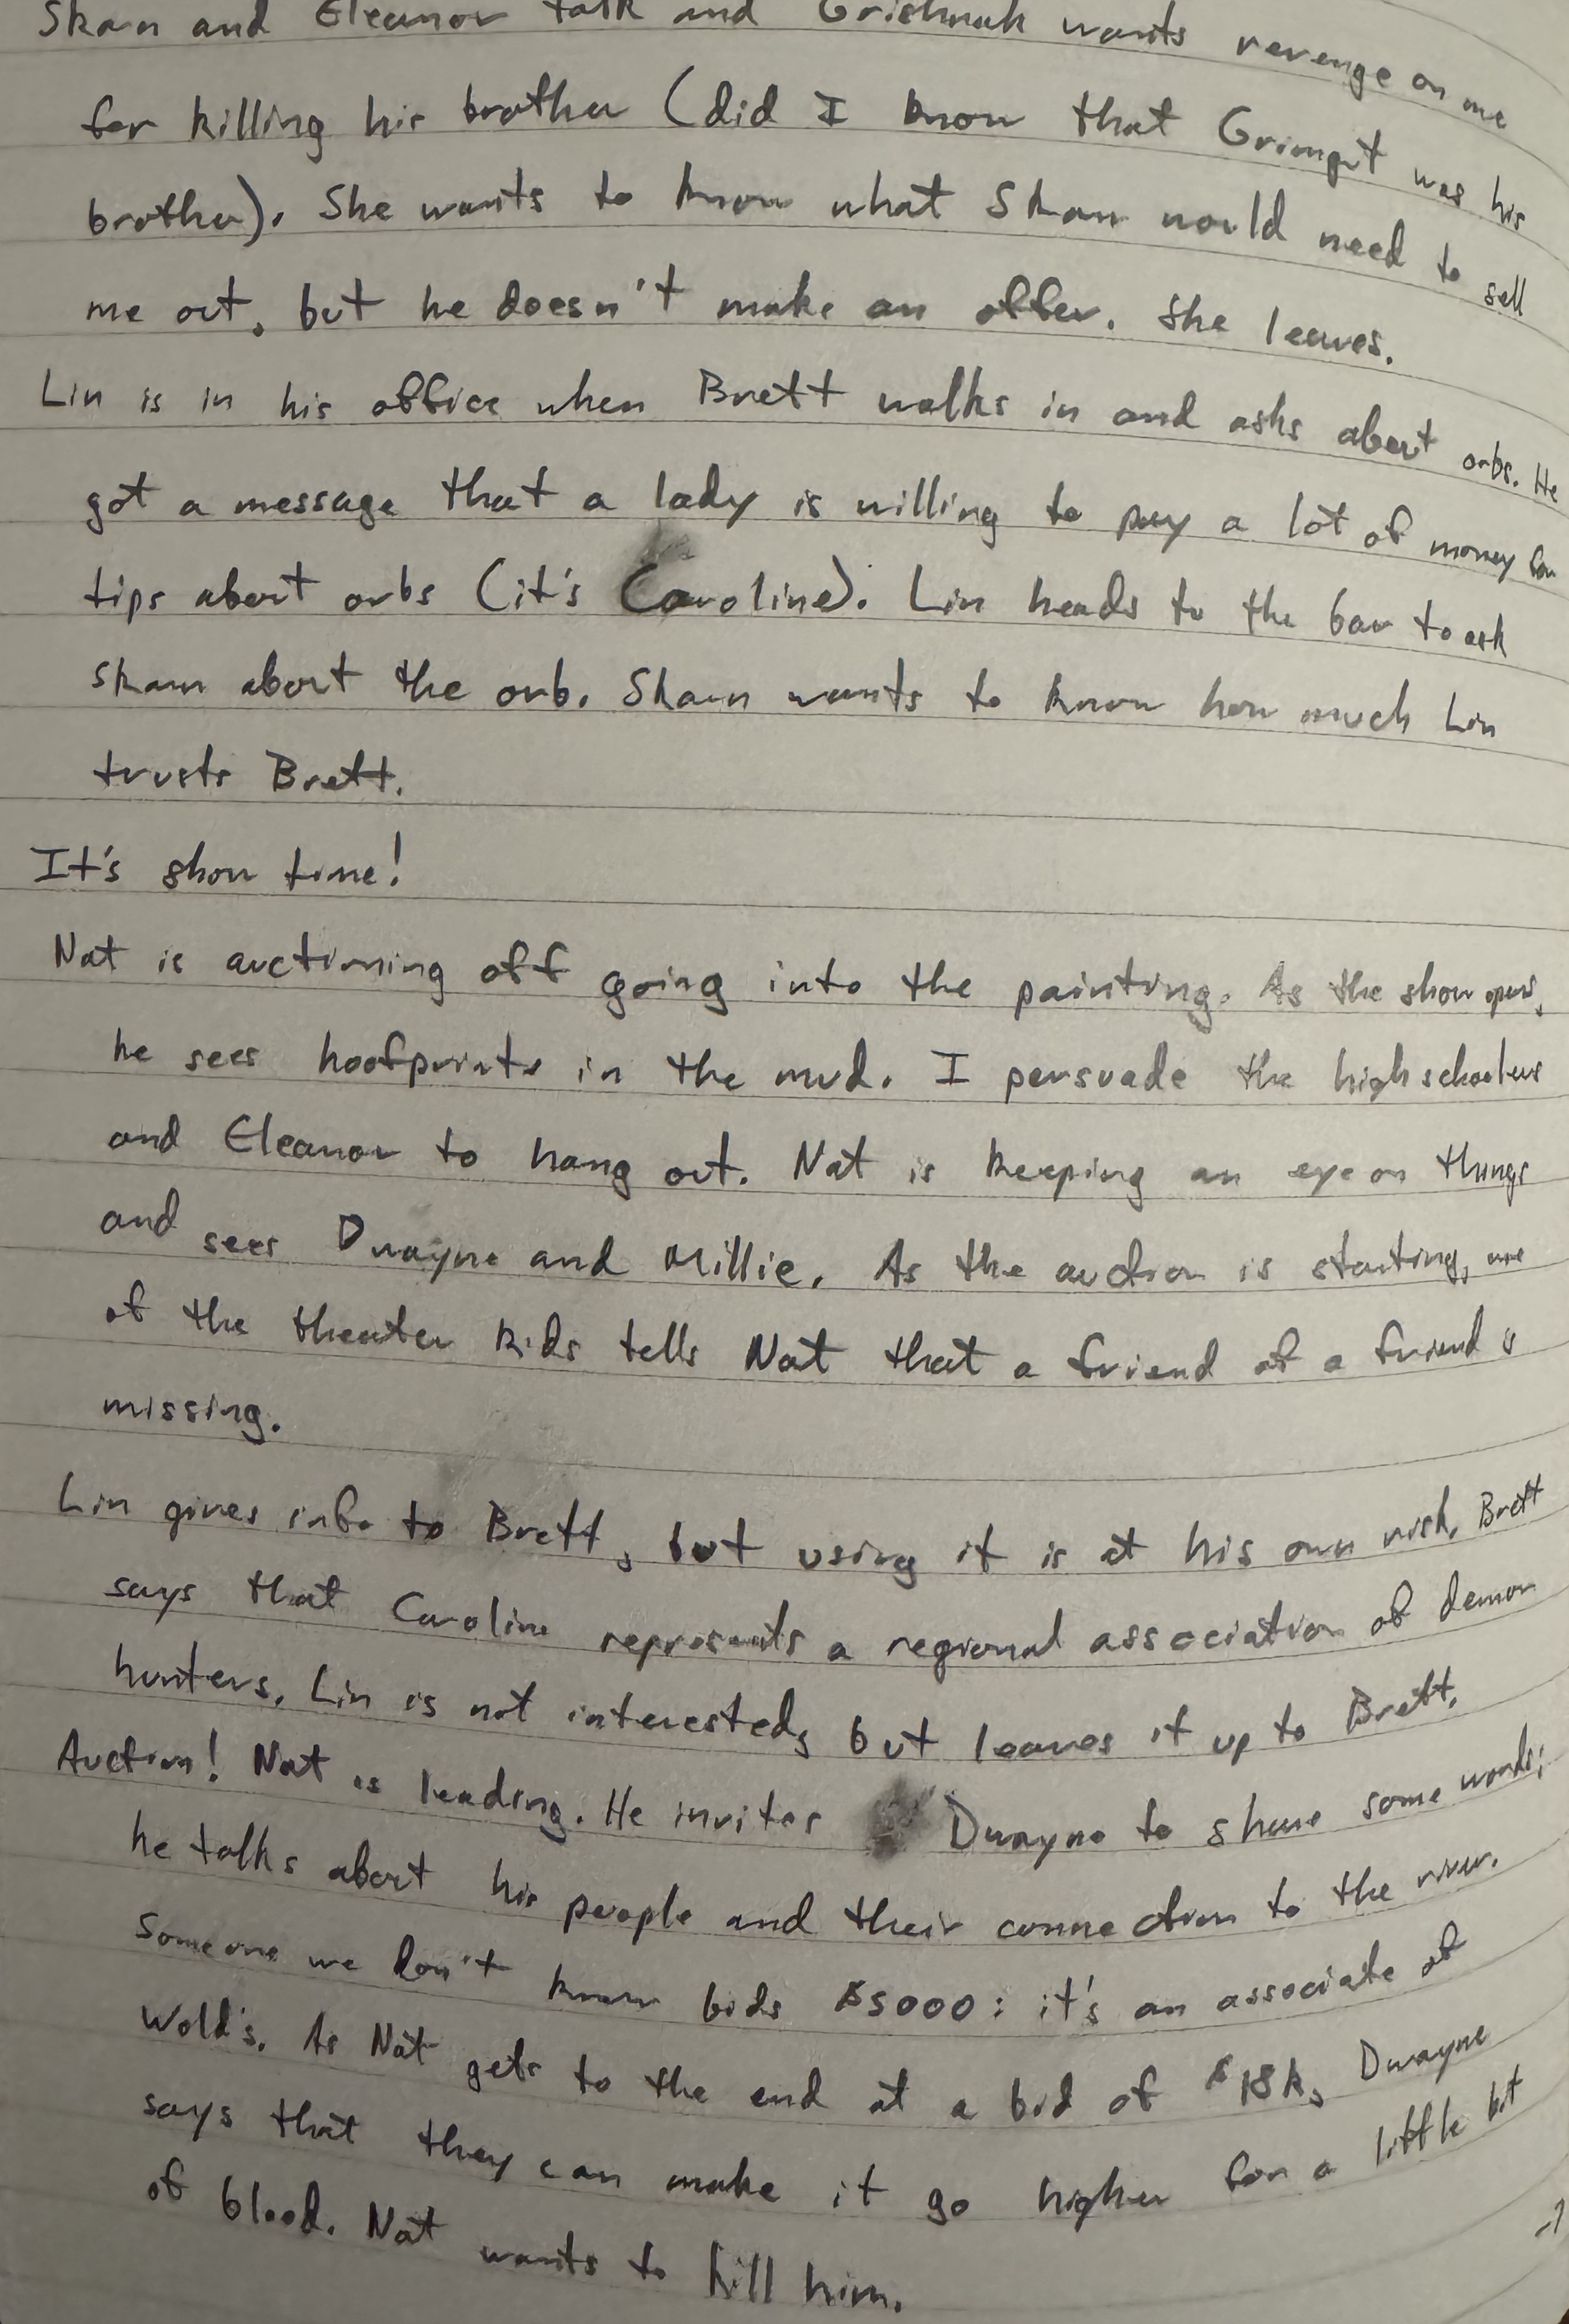 Skaun and Eleanor talk and Grishnak wants revenge on me
for killing his brother (did I know that Grimgut was his
brother). She wants to know what Skaun would need to sell
me out, but he doesn't make an offer. She leaves.
Lin is in his office when Brett walks in and asks about orbs. He
got a message that a lady is willing to pay a lot of money for
tips about orbs (it's Caroline). Lin heads to the bar to ask
Skaun about the orb. Skaun wants to know how much Lin
trusts Brett.
It's show time!
Nat is auctioning off going into the painting. As the show opens,
he sees hoofprints in the mud. I persuade the highschoolers
and Eleanor to hang out. Nat is keeping an eye on things
and sees Dwayne and Millie. As the auction is starting, one
of the theater kids tells Nat that a friend of a friend is
missing.
Lin gives info to Brett, but using it is at his own risk. Brett
says that Caroline represents a regional association of demon
hunters. Lin is not interested, but leaves it up to Brett.
Auction! Nat is leading. He invites Dwayne to share some words;
he talks about his people and their connection to the river.
Someone we don't know bids $5000: it's an associate of
Wold's. As Nat gets to the end at a bid of $18k, Dwayne
says that they can make it go higher for a little bit
of blood. Nat wants to kill him.